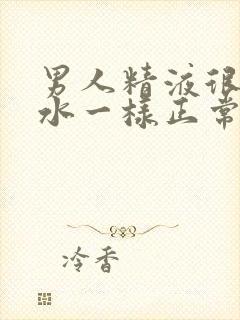 男人精液很
水一様正常
冷香